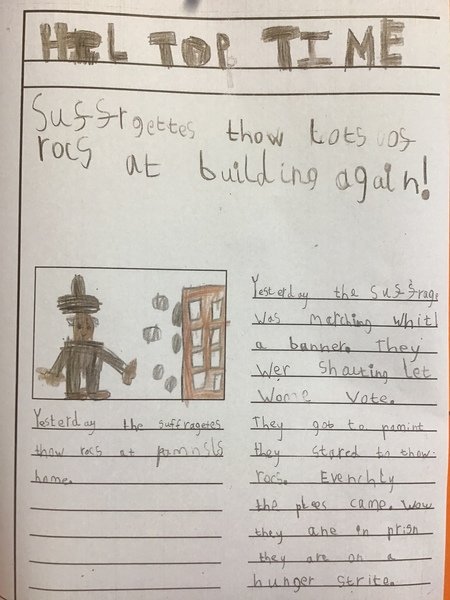 HIL TOP TIME
Suffrgettes thow Lots of
rocs at building again!
Yesterday the suffragetes
thow rocs at
home.
Yesterday the suffrage
was marching whitl
a banner. They
wer shouting let
vote.
They got to
they stared to thow
rocs. Evenchly
the came. Wow
they are in prisn
they are on a
hunger strite.